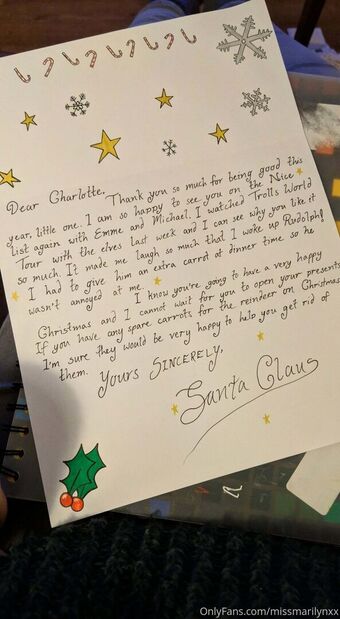 Dear Charlotte,
Thank you so much for being good this
year, little one. I am so happy to see you on the Nice
List again with Emme and Michael. I watched Troll's World
Tour with the elves last week and I can see why you like it
so much. It made me laugh so much that I woke up Rudolph!
I had to give him an extra carrot at dinner time so he
wasn't annoyed at me.
I know you're going to have a very happy
Christmas and I cannot wait for you to open your presents
If you have any spare carrots for the reindeer on Christmas
I'm sure they would be very happy to help you get rid of
them.
Yours Sincerely,
Santa Claus
OnlyFans.com/missmarilynxx